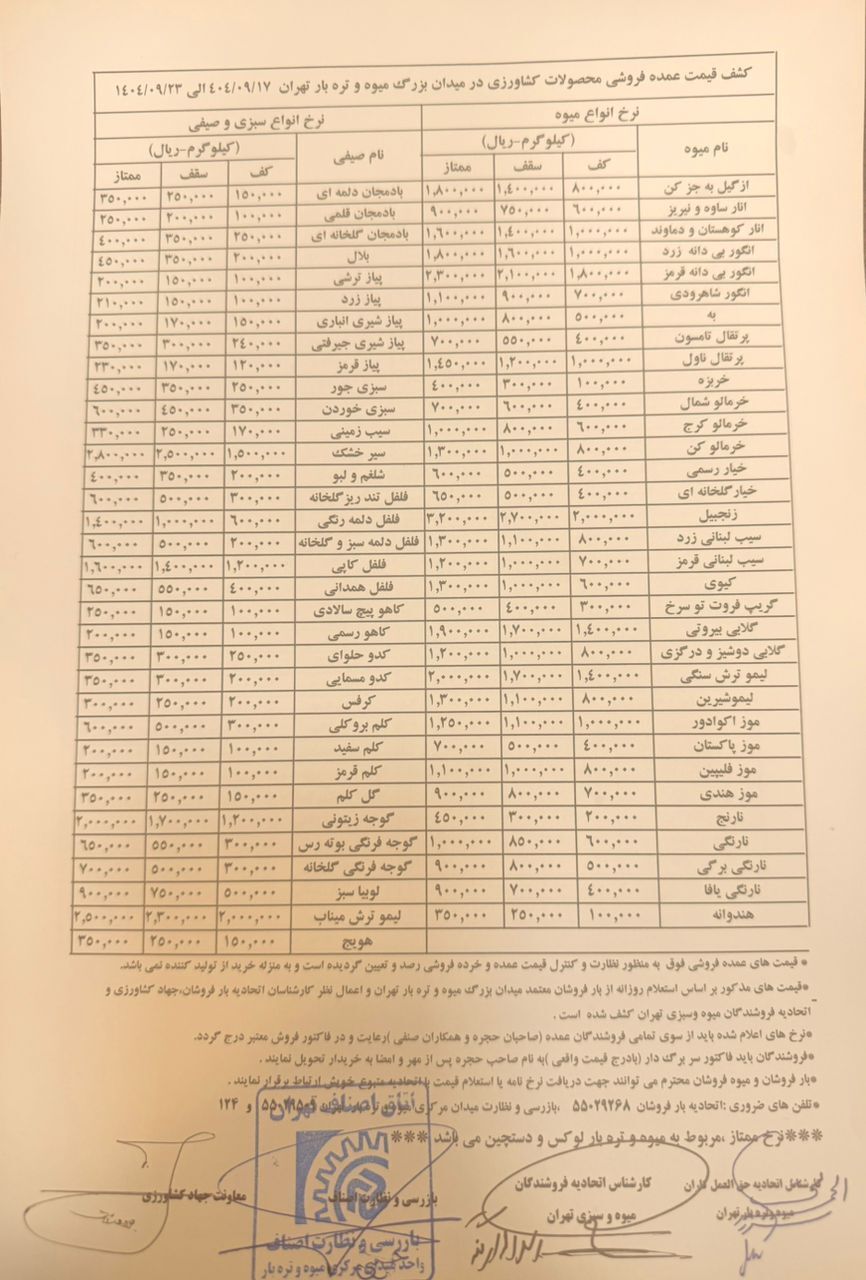 کشف قیمت عمده فروشی محصولات کشاورزی در میدان بزرگ میوه و تره بار تهران ۴۰۴/۰۹/۱۷ الی ۱۴۰۴/۰۹/۲۳
نرخ انواع میوه نرخ انواع سبزی و صیفی
نام میوه (کیلوگرم-ریال) نام صیفی (کیلوگرم-ریال)
کف سقف ممتاز کف سقف ممتاز
ازگیل به جز کن ۸۰۰,۰۰۰ ۱,۴۰۰,۰۰۰ ۱,۸۰۰,۰۰۰ بادمجان دلمه ای ۱۵۰,۰۰۰ ۲۵۰,۰۰۰ ۳۵۰,۰۰۰
انار ساوه و نیریز ۶۰۰,۰۰۰ ۷۵۰,۰۰۰ ۹۰۰,۰۰۰ بادمجان قلمی ۱۰۰,۰۰۰ ۲۰۰,۰۰۰ ۲۵۰,۰۰۰
انار کوهستان و دماوند ۱,۰۰۰,۰۰۰ ۱,۴۰۰,۰۰۰ ۱,۶۰۰,۰۰۰ بادمجان گلخانه ای ۲۵۰,۰۰۰ ۳۵۰,۰۰۰ ۴۰۰,۰۰۰
انگور بی دانه زرد ۱,۰۰۰,۰۰۰ ۱,۶۰۰,۰۰۰ ۱,۸۰۰,۰۰۰ بلال ۲۰۰,۰۰۰ ۳۵۰,۰۰۰ ۴۵۰,۰۰۰
انگور بی دانه قرمز ۱,۸۰۰,۰۰۰ ۲,۱۰۰,۰۰۰ ۲,۳۰۰,۰۰۰ پیاز ترشی ۱۰۰,۰۰۰ ۱۵۰,۰۰۰ ۲۰۰,۰۰۰
انگور شاهرودی ۷۰۰,۰۰۰ ۹۰۰,۰۰۰ ۱,۱۰۰,۰۰۰ پیاز زرد ۱۰۰,۰۰۰ ۱۵۰,۰۰۰ ۲۱۰,۰۰۰
به ۵۰۰,۰۰۰ ۸۰۰,۰۰۰ ۱,۰۰۰,۰۰۰ پیاز شیری انباری ۱۵۰,۰۰۰ ۱۷۰,۰۰۰ ۲۰۰,۰۰۰
پرتقال تامسون ۴۰۰,۰۰۰ ۵۵۰,۰۰۰ ۷۰۰,۰۰۰ پیاز شیری جیرفتی ۲۴۰,۰۰۰ ۳۰۰,۰۰۰ ۳۵۰,۰۰۰
پرتقال ناول ۱,۰۰۰,۰۰۰ ۱,۲۰۰,۰۰۰ ۱,۴۵۰,۰۰۰ پیاز قرمز ۱۲۰,۰۰۰ ۱۷۰,۰۰۰ ۲۳۰,۰۰۰
خربزه ۱۰۰,۰۰۰ ۳۰۰,۰۰۰ ۴۰۰,۰۰۰ سبزی جور ۲۵۰,۰۰۰ ۳۵۰,۰۰۰ ۴۵۰,۰۰۰
خرمالو شمال ۴۰۰,۰۰۰ ۶۰۰,۰۰۰ ۷۰۰,۰۰۰ سبزی خوردن ۳۵۰,۰۰۰ ۴۵۰,۰۰۰ ۶۰۰,۰۰۰
خرمالو کرج ۶۰۰,۰۰۰ ۸۰۰,۰۰۰ ۱,۰۰۰,۰۰۰ سیب زمینی ۱۷۰,۰۰۰ ۲۵۰,۰۰۰ ۳۳۰,۰۰۰
خرمالو کن ۸۰۰,۰۰۰ ۱,۰۰۰,۰۰۰ ۱,۳۰۰,۰۰۰ سیر خشک ۱,۵۰۰,۰۰۰ ۲,۵۰۰,۰۰۰ ۲,۸۰۰,۰۰۰
خیار رسمی ۴۰۰,۰۰۰ ۵۰۰,۰۰۰ ۶۰۰,۰۰۰ شلغم و لبو ۲۰۰,۰۰۰ ۳۵۰,۰۰۰ ۴۰۰,۰۰۰
خیارگلخانه ای ۴۰۰,۰۰۰ ۵۰۰,۰۰۰ ۶۵۰,۰۰۰ فلفل تند ریز گلخانه ۳۰۰,۰۰۰ ۵۰۰,۰۰۰ ۶۰۰,۰۰۰
زنجبیل ۲,۰۰۰,۰۰۰ ۲,۷۰۰,۰۰۰ ۳,۲۰۰,۰۰۰ فلفل دلمه رنگی ۶۰۰,۰۰۰ ۱,۰۰۰,۰۰۰ ۱,۴۰۰,۰۰۰
سیب لبنانی زرد ۸۰۰,۰۰۰ ۱,۱۰۰,۰۰۰ ۱,۳۰۰,۰۰۰ فلفل دلمه سبز و گلخانه ۲۰۰,۰۰۰ ۵۰۰,۰۰۰ ۶۰۰,۰۰۰
سیب لبنانی قرمز ۷۰۰,۰۰۰ ۱,۰۰۰,۰۰۰ ۱,۲۰۰,۰۰۰ فلفل کاپی ۱,۲۰۰,۰۰۰ ۱,۴۰۰,۰۰۰ ۱,۶۰۰,۰۰۰
کیوی ۶۰۰,۰۰۰ ۱,۰۰۰,۰۰۰ ۱,۳۰۰,۰۰۰ فلفل همدانی ۴۰۰,۰۰۰ ۵۵۰,۰۰۰ ۶۵۰,۰۰۰
گریپ فروت تو سرخ ۳۰۰,۰۰۰ ۴۰۰,۰۰۰ ۵۰۰,۰۰۰ کاهو پیچ سالادی ۱۰۰,۰۰۰ ۱۵۰,۰۰۰ ۲۵۰,۰۰۰
گلابی بیروتی ۱,۴۰۰,۰۰۰ ۱,۷۰۰,۰۰۰ ۱,۹۰۰,۰۰۰ کاهو رسمی ۱۰۰,۰۰۰ ۱۵۰,۰۰۰ ۲۰۰,۰۰۰
گلابی دوشیز و درگزی ۸۰۰,۰۰۰ ۱,۰۰۰,۰۰۰ ۱,۲۰۰,۰۰۰ کدو حلوای ۲۵۰,۰۰۰ ۳۰۰,۰۰۰ ۳۵۰,۰۰۰
لیمو ترش سنگی ۱,۴۰۰,۰۰۰ ۱,۷۰۰,۰۰۰ ۲,۰۰۰,۰۰۰ کدو مسمایی ۲۰۰,۰۰۰ ۳۰۰,۰۰۰ ۳۵۰,۰۰۰
لیموشیرین ۸۰۰,۰۰۰ ۱,۱۰۰,۰۰۰ ۱,۳۰۰,۰۰۰ کرفس ۲۰۰,۰۰۰ ۲۵۰,۰۰۰ ۳۰۰,۰۰۰
موز اکوادور ۱,۰۰۰,۰۰۰ ۱,۱۰۰,۰۰۰ ۱,۲۵۰,۰۰۰ کلم بروکلی ۳۰۰,۰۰۰ ۵۰۰,۰۰۰ ۶۰۰,۰۰۰
موز پاکستان ۴۰۰,۰۰۰ ۵۰۰,۰۰۰ ۷۰۰,۰۰۰ کلم سفید ۱۰۰,۰۰۰ ۱۵۰,۰۰۰ ۲۰۰,۰۰۰
موز فلیپین ۸۰۰,۰۰۰ ۱,۰۰۰,۰۰۰ ۱,۱۰۰,۰۰۰ کلم قرمز ۱۰۰,۰۰۰ ۱۵۰,۰۰۰ ۲۰۰,۰۰۰
موز هندی ۷۰۰,۰۰۰ ۸۰۰,۰۰۰ ۹۰۰,۰۰۰ گل کلم ۱۵۰,۰۰۰ ۲۵۰,۰۰۰ ۳۵۰,۰۰۰
نارنج ۲۰۰,۰۰۰ ۳۰۰,۰۰۰ ۴۵۰,۰۰۰ گوجه زیتونی ۱,۲۰۰,۰۰۰ ۱,۷۰۰,۰۰۰ ۲,۰۰۰,۰۰۰
نارنگی ۶۰۰,۰۰۰ ۸۵۰,۰۰۰ ۱,۰۰۰,۰۰۰ گوجه فرنگی بوته رس ۳۰۰,۰۰۰ ۵۵۰,۰۰۰ ۶۵۰,۰۰۰
نارنگی برگی ۵۰۰,۰۰۰ ۸۰۰,۰۰۰ ۹۰۰,۰۰۰ گوجه فرنگی گلخانه ۳۰۰,۰۰۰ ۵۰۰,۰۰۰ ۷۰۰,۰۰۰
نارنگی یافا ۴۰۰,۰۰۰ ۷۰۰,۰۰۰ ۹۰۰,۰۰۰ لوبیا سبز ۵۰۰,۰۰۰ ۷۵۰,۰۰۰ ۹۰۰,۰۰۰
هندوانه ۱۰۰,۰۰۰ ۲۵۰,۰۰۰ ۳۵۰,۰۰۰ لیمو ترش میناب ۲,۰۰۰,۰۰۰ ۲,۳۰۰,۰۰۰ ۲,۵۰۰,۰۰۰
هویج ۱۵۰,۰۰۰ ۲۵۰,۰۰۰ ۳۵۰,۰۰۰
* قیمت های عمده فروشی فوق به منظور نظارت و کنترل قیمت عمده و خرده فروشی رصد و تعیین گردیده است و به منزله خرید از تولید کننده نمی باشد.
*قیمت های مذکور بر اساس استعلام روزانه از بار فروشان معتمد میدان بزرگ میوه و تره بار تهران و اعمال نظر کارشناسان اتحادیه بار فروشان،جهاد کشاورزی و
اتحادیه فروشندگان میوه وسبزی تهران کشف شده است .
*نرخ های اعلام شده باید از سوی تمامی فروشندگان عمده (صاحبان حجره و همکاران صنفی )رعایت و در فاکتور فروش معتبر درج گردد.
*فروشندگان باید فاکتور سر برگ دار (بادرج قیمت واقعی )به نام صاحب حجره پس از مهر و امضا به خریدار تحویل نمایند .
*بار فروشان و میوه فروشان محترم می توانند جهت دریافت نرخ نامه یا استعلام قیمت با اتحادیه متبوع خویش ارتباط برقرار نمایند .
*تلفن های ضروری :اتحادیه بار فروشان ۵۵۰۲۹۲۶۸ ،بازرسی و نظارت میدان مرکزی میوه و تره بار تهران و ۱۲۴
اتاق اصناف تهران
***نرخ ممتاز ،مربوط به میوه و تره بار لوکس و دستچین می باشد ***
کارشناس اتحادیه حق العمل کاران کارشناس اتحادیه فروشندگان بازرسی و نظارت اصناف معاونت جهاد کشاورزی
میوه و تره بار تهران میوه و سبزی تهران
بازرسی و نظارت اصناف
واحد میدان مرکزی میوه و تره بار